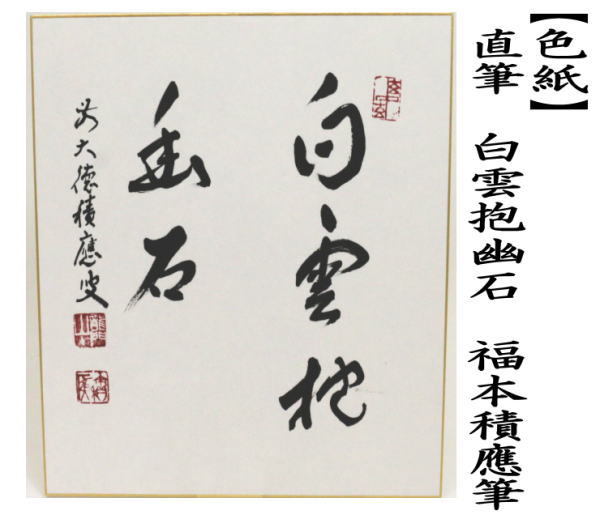 【色紙】
直筆 白雲抱幽石 福本積應筆
白雲抱
幽石
前大徳積應叟